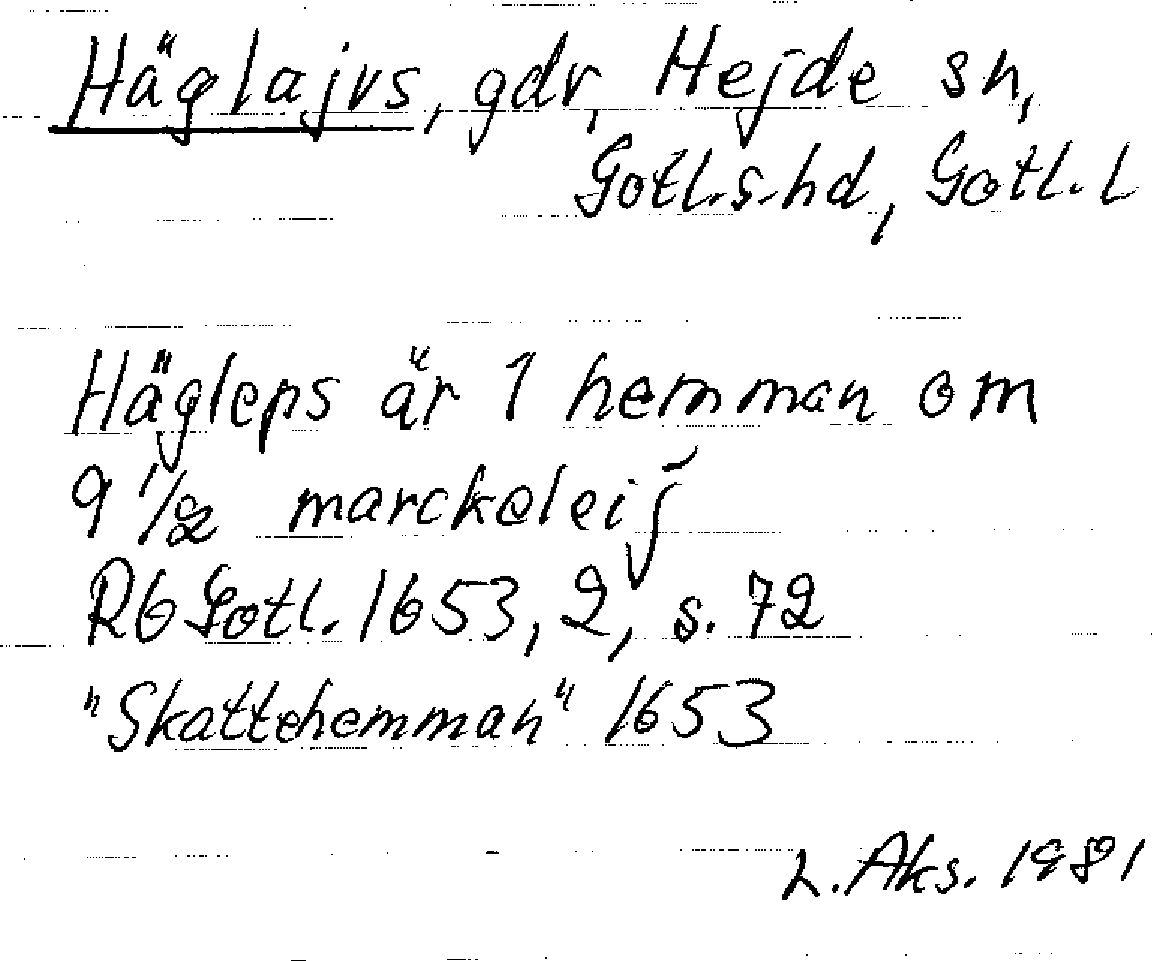 Häglajvs, gdr, Hejde sn,
Gotl.s.hd, Gotl. l
Hägleps är 1 hemman om
9 1/2 marckeleij
Rb Gotl. 1653, 2, s. 72
"Skattehemman" 1653
L. Aks. 1981